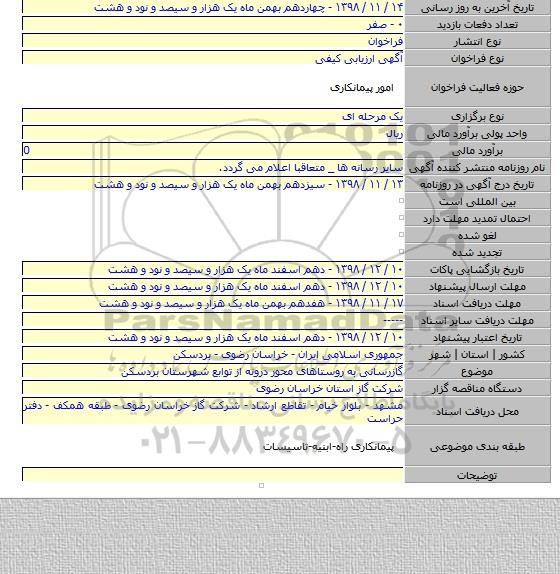 تاریخ آخرین به روز رسانی ۱۴ / ۱۱ / ۱۳۹۸ - چهاردهم بهمن ماه یک هزار و سیصد و نود و هشت
تعداد دفعات بازدید ۰ - صفر
نوع انتشار فراخوان
نوع فراخوان آگهی ارزیابی کیفی
حوزه فعالیت فراخوان امور پیمانکاری
نوع برگزاری یک مرحله ای
واحد پولی برآورد مالی ریال
برآورد مالی 0
نام روزنامه منتشر کننده آگهی سایر رسانه ها _ متعاقبا اعلام می گردد.
تاریخ درج آگهی در روزنامه ۱۳ / ۱۱ / ۱۳۹۸ - سیزدهم بهمن ماه یک هزار و سیصد و نود و هشت
بین المللی است
احتمال تمدید مهلت دارد
لغو شده
تجدید شده
تاریخ بازگشایی پاکات ۱۰ / ۱۲ / ۱۳۹۸ - دهم اسفند ماه یک هزار و سیصد و نود و هشت
مهلت ارسال پیشنهاد ۱۰ / ۱۲ / ۱۳۹۸ - دهم اسفند ماه یک هزار و سیصد و نود و هشت
مهلت دریافت اسناد ۱۷ / ۱۱ / ۱۳۹۸ - هفدهم بهمن ماه یک هزار و سیصد و نود و هشت
مهلت دریافت سایر اسناد -----
ParsNamadData
تاریخ اعتبار پیشنهاد ۱۰ / ۱۲ / ۱۳۹۸ - دهم اسفند ماه یک هزار و سیصد و نود و هشت
کشور | استان | شهر جمهوری اسلامی ایران - خراسان رضوی - بردسکن
موضوع گازرسانی به روستاهای محور درونه از توابع شهرستان بردسکن
دستگاه مناقصه گزار شرکت گاز استان خراسان رضوی
محل دریافت اسناد مشهد - بلوار خیام- تقاطع ارشاد - شرکت گاز خراسان رضوی - طبقه همکف - دفتر
حراست
۰۲۱-۸۸۳۴۹۶۷۰-۵
طبقه بندی موضوعی پیمانکاری راه-ابنیه-تاسیسات
توضیحات